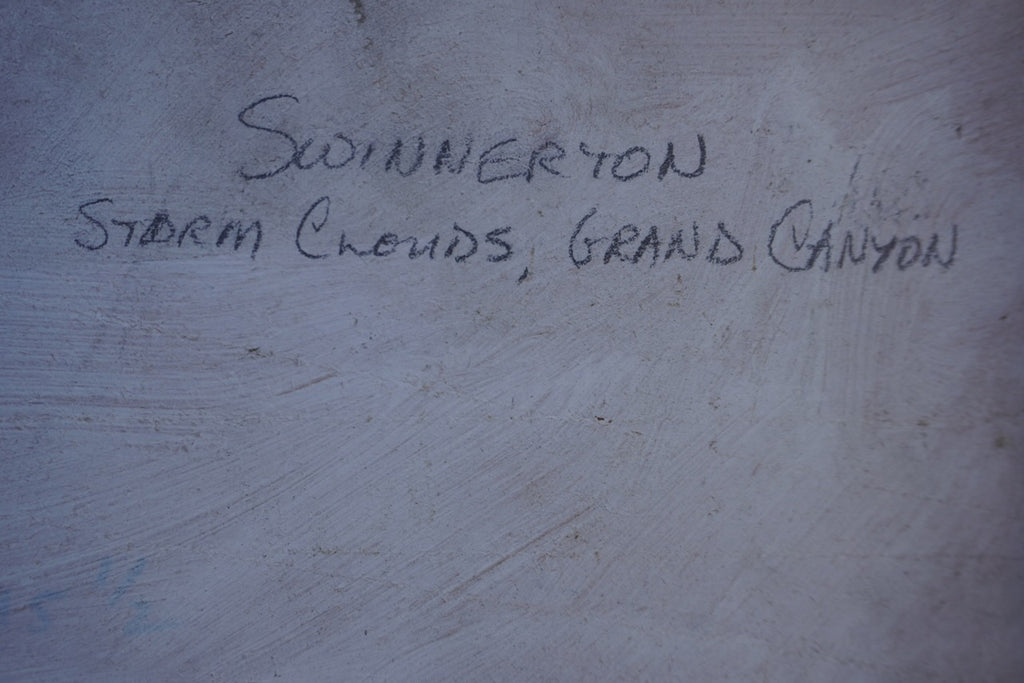 Swinnerton
Storm Clouds, Grand Canyon